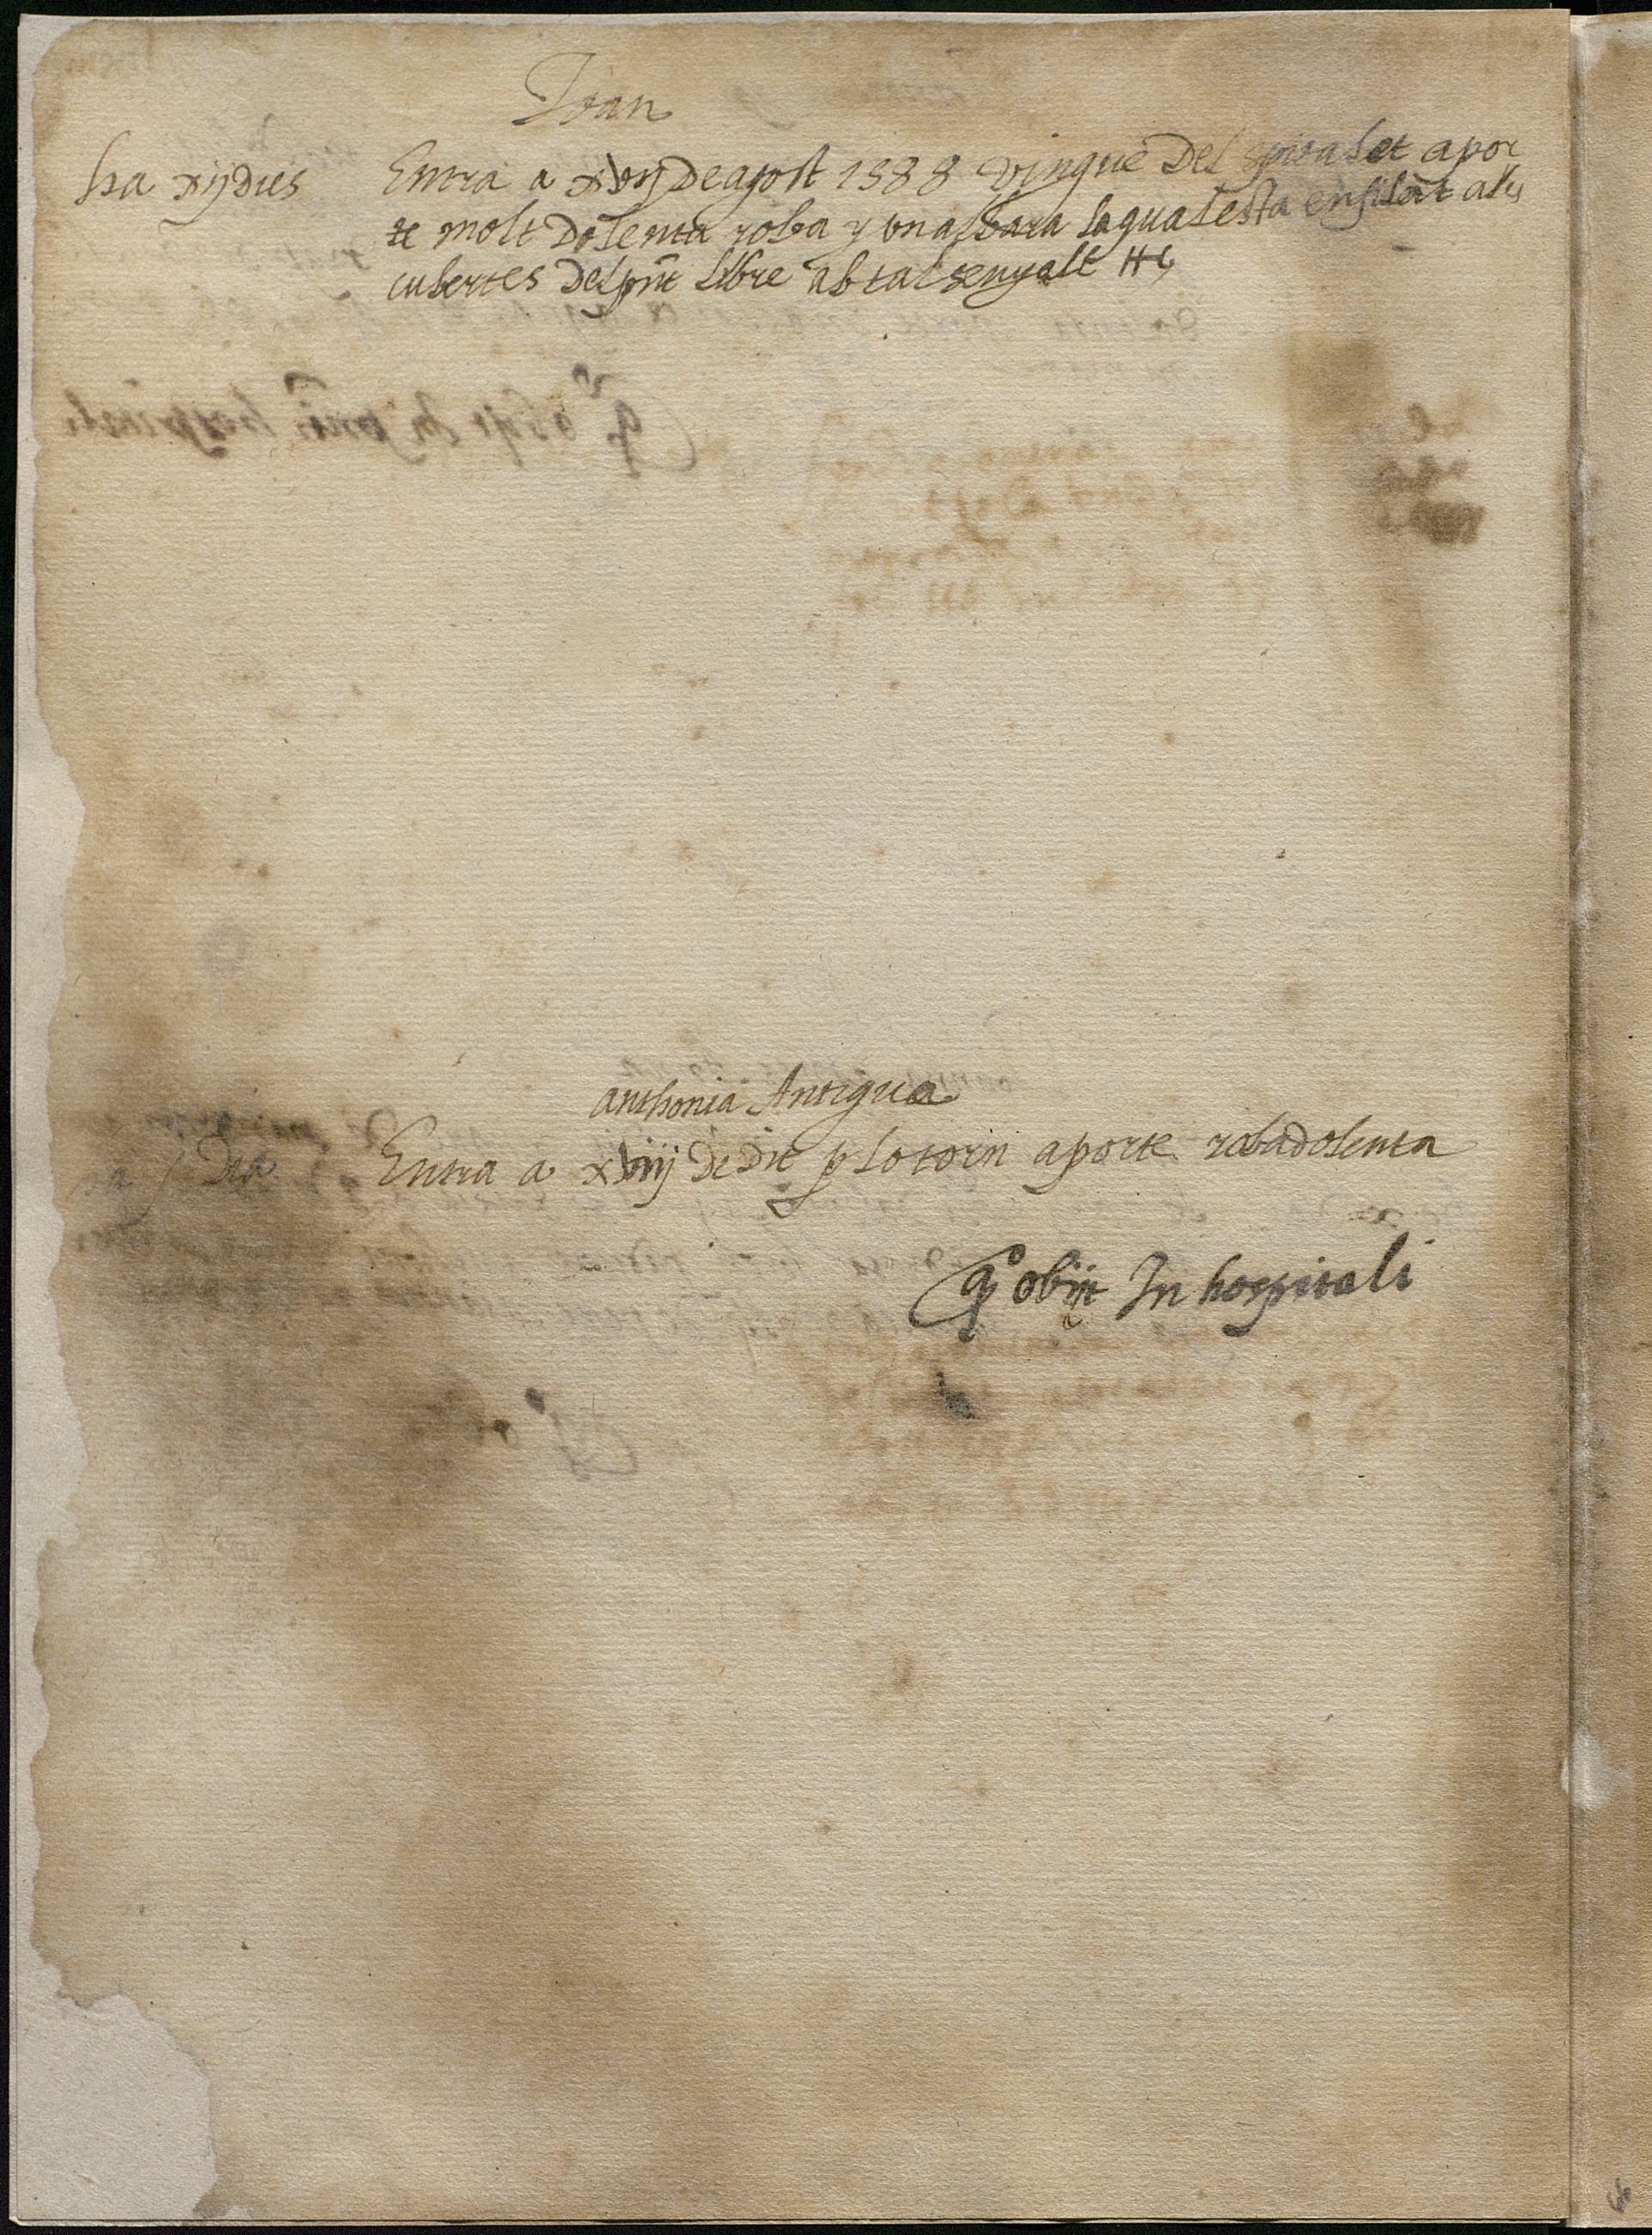 Joan
ha xij dies
Entra a xvij de agost 1588 vingue del spitalet apor
te molt dolenta roba y un albara laqual esta enfilat a les
cubertes del pnt llibre ab tal senyall
anthonia Antigua
ha j dia
Entra a xviiij de dit p lo torn aporte roba dolenta
obijt In hospitali